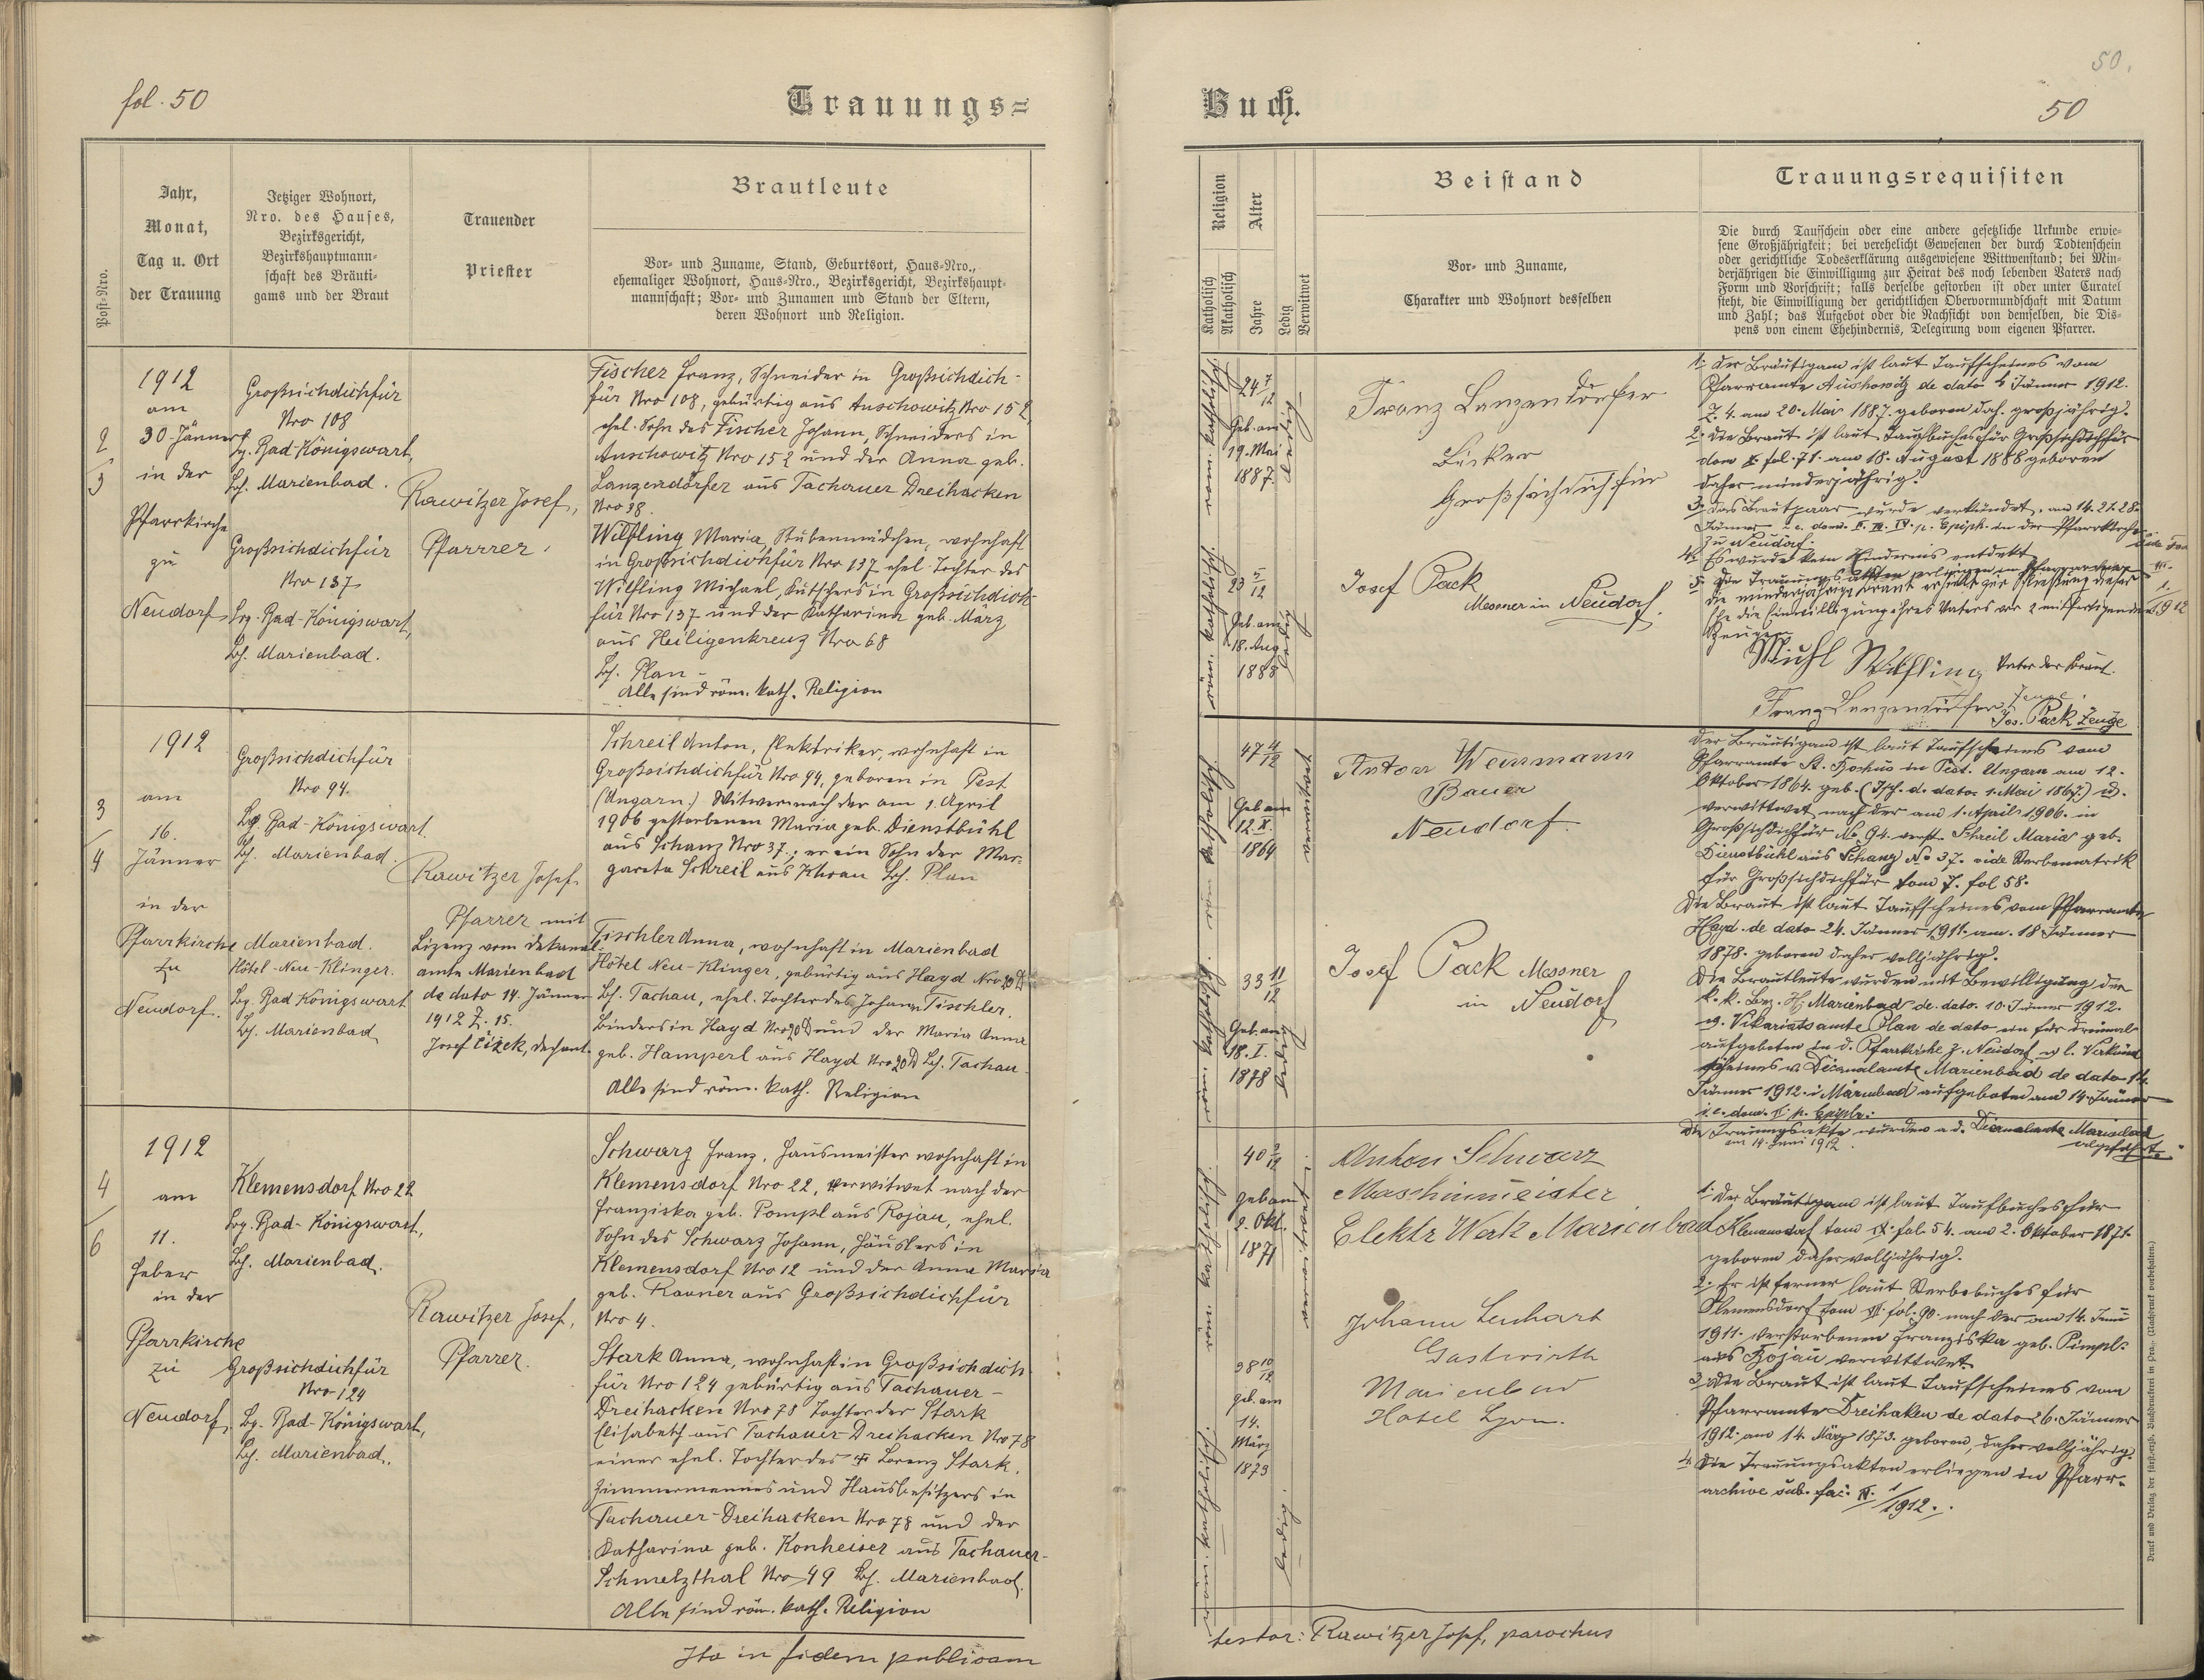 fol. 50
Trauungs=
Jahr,
Monat,
Tag u. Ort
der Trauung
Jetziger Wohnort,
Nro. des Hauses,
Bezirksgericht,
Bezirkshauptmann-
schaft des Bräuti-
gams und der Braut
Trauender
Priester
Brautleute
Vor- und Zuname, Stand, Geburtsort, Haus-Nro.,
ehemaliger Wohnort, Haus-Nro., Bezirksgericht, Bezirkshaupt-
mannschaft; Vor- und Zunamen und Stand der Eltern,
deren Wohnort und Religion.
Post-Nro.
2
3
1912
am
30. Jänner
in der
Pfarrkirche
zu
Neudorf
Großsichdichfür
Nro 108
Bg. Bad-Königswart,
Bh. Marienbad.
Großsichdichfür
Nro 137
Bg. Bad-Königswart,
Bh. Marienbad.
Rawitzer Josef,
Pfarrer.
Fischer Franz, Schneider in Großsichdich-
für Nro 108, gebürtig aus Auschowitz Nro 152,
ehel. Sohn des Fischer Johann, Schneiders in
Auschowitz Nro 152 und der Anna geb.
Lanzendörfer aus Tachauer Dreihacken
Nro 38.
Wilfling Maria, Stubenmädchen, wohnhaft
in Großsichdichfür Nro 137 ehel. Tochter des
Wilfling Michael, Kutschers in Großsichdich-
für Nro 137 und der Katharina geb. März
aus Heiligenkreuz Nro 68
Bh. Plan -
Alle sind röm. kath. Religion
3
4
1912
am
16.
Jänner
in der
Pfarrkirche
zu
Neudorf.
Großsichdichfür
Nro 94.
Bg. Bad-Königswart
Bh. Marienbad.
Marienbad.
Hôtel-Neu-Klinger.
Bg. Bad Königswart
Bh. Marienbad
Rawitzer Josef
Pfarrer mit
Lizenz vom Dekanal-
amte Marienbad
de dato 14. Jänner
1912 Z. 15.
Josef Čížek, Dechant.
Schreil Anton, Elektriker, wohnhaft in
Großsichdichfür Nro 94, geboren in Pest
(Ungarn.) Witwer nach der am 1. April
1906 gestorbenen Maria geb. Dienstbühl
aus Schanz Nro 37; er ein Sohn der Mar-
gareta Schreil aus Khoau Bh. Plan
Tischler Anna, wohnhaft in Marienbad
Hôtel Neu-Klinger, gebürtig aus Hayd Nro 20
Bh. Tachau, ehel. Tochter des Johann Tischler,
Binders in Hayd Nro 20 und der Maria Anna
geb. Hamperl aus Hayd Nro 20 Bh. Tachau.
Alle sind röm. kath. Religion
4
6
1912
am
11.
Feber
in der
Pfarrkirche
zu
Neudorf.
Klemensdorf Nro 22
Bg. Bad-Königswart,
Bh. Marienbad.
Großsichdichfür
Nro 124
Bg. Bad-Königswart,
Bh. Marienbad.
Rawitzer Josef,
Pfarrer.
Schwarz Franz, Hausmeister wohnhaft in
Klemensdorf Nro 22, verwitwet nach der
Franziska geb. Pompl aus Rojau, ehel.
Sohn des Schwarz Johann, Häuslers in
Klemensdorf Nro 12 und der Anna Maria
geb. Rauner aus Großsichdichfür
Nro 4.
Stark Anna, wohnhaft in Großsichdich-
für Nro 124 gebürtig aus Tachauer-
Dreihacken Nro 78 Tochter der Stark
Elisabeth aus Tachauer Dreihacken Nro 78
einer ehel. Tochter des Lorenz Stark,
Zimmermannes und Hausbesitzers in
Tachauer-Dreihacken Nro 78 und der
Katharina geb. Konheiser aus Tachauer-
Schmelzthal Nro 49 Bh. Marienbad.
Alle sind röm. kath. Religion
Ita in fidem publicam
50.
Buch.
50
Religion
Katholisch
Akatholisch
Alter
Jahre
Ledig
Verwitwet
Beistand
Vor- und Zuname,
Charakter und Wohnort desselben
Trauungsrequisiten
Die durch Taufschein oder eine andere gesetzliche Urkunde erwie-
sene Großjährigkeit; bei verehelicht Gewesenen der durch Todtenschein
oder gerichtliche Todeserklärung ausgewiesene Wittwenstand; bei Min-
derjährigen die Einwilligung zur Heirat des noch lebenden Vaters nach
Form und Vorschrift; falls derselbe gestorben ist oder unter Curatel
steht, die Einwilligung der gerichtlichen Obervormundschaft mit Datum
und Zahl; das Aufgebot oder die Nachsicht von demselben, die Dis-
pens von einem Ehehindernis, Delegirung vom eigenen Pfarrer.
röm. katholisch
24 7/12
Geb. am
19. Mai
1887.
ledig
Franz Lanzendörfer
Bäcker
Großsichdichfür
röm. katholisch
23 5/12
Geb. am
18. Aug
1888
ledig
Josef Pack
Messner in Neudorf.
1. Der Bräutigam ist laut Taufscheines vom
Pfarramte Auschowitz de dato 4 Jänner 1912.
Z. 4. am 20. Mai 1887. geboren, dah. großjährig.
2. Die Braut ist laut Taufbuches für Großsichdichfür
tom X fol. 71. am 18. August 1888 geboren
daher minderjährig.
3. Das Brautpaar wurde verkündet am 14. 21. 28.
Jänner i. e. dom. II. III. IV. p. Epiph. in der Pfarrkirche
zu Neudorf.
4. Es wurde kein Hindernis entdeckt
5. Die Trauungsakten erliegen im Pfarrarchiv
die minderjährige Braut erhielt zur Schließung dieser
Ehe die Einwilligung ihres Vaters vor 2 mitfertigenden
Zeugen
Michl Wilfling Vater der Braut.
Franz Lanzendörfer Zeuge.
Jos. Pack Zeuge
47 4/12
Geb am
12. X.
1864
verwitwet
Anton Weinmann
Bauer
Neudorf.
röm. katholisch
33 11/12
Geb. am
18. I.
1878
ledig
Josef Pack Messner
in Neudorf
Der Bräutigam ist laut Taufscheines vom
Pfarramte St. Rochus in Pest. Ungarn am 12.
Oktober 1864. geb. (Tsch. d. dato 1. Mai 1867.) u.
verwittwet nach der am 1. April 1906. in
Großsichdichfür No. 94. verst. Schreil Maria geb.
Dienstbühl aus Schanz No 37. vide Sterbematrik
für Großsichdichfür tom 7. fol 58.
Die Braut ist laut Taufscheines vom Pfarramte
Hayd. de dato 24. Jänner 1911. am 18 Jänner
1878. geboren daher volljährig.
Die Brautleute wurden mit Bewilligung der
k. k. Bez. H. Marienbad de dato. 10. Jänner 1912.
u. Vikariatsamte Plan de dato ein für dreimal
aufgeboten in d. Pfarrkirche z. Neudorf u. l. Verkünd
scheines v. Decanalamte Marienbad de dato 14.
Jänner 1912. i Marienbad aufgeboten am 14. Jänner
i. e. dom. II. p. Epiph.
Die Trauungsakte wurden a. d. Decanalamte Marienbad
am 14. Juni 1912. abgeführt.
40 3/12
geb am
2. Okt.
1871
verwitwet
Anton Schwarz
Maschinmeister
Elektr Werk Marienbad
38 10/12
geb. am
14.
März
1873
ledig.
röm. katholisch.
Johann Lenhart
Gastwirth
Marienbad
Hotel Lyon.
1. Der Bräutigam ist laut Taufbuches für
Klemensdorf tom IX. fol. 54. am 2. Oktober 1871.
geboren daher volljährig.
2. Er ist ferner laut Sterbebuches für
Klemensdorf tom VI. fol. 90. nach der am 14. Juni
1911. verstorbenen Franziska geb. Pimpl.
aus Rojau verwittwet.
3. Die Braut ist laut Taufscheines vom
Pfarramte Dreihaken de dato 26. Jänner
1912. am 14 März 1873. geboren, daher volljährig.
4. Die Trauungsakten erliegen in Pfarr-
archive sub. fac. IV. 1/1912.
testor: Rawitzer Josef, parochus
Druck und Verlag der fürst.-erzb. Buchdruckerei in Prag. (Nachdruck vorbehalten.)